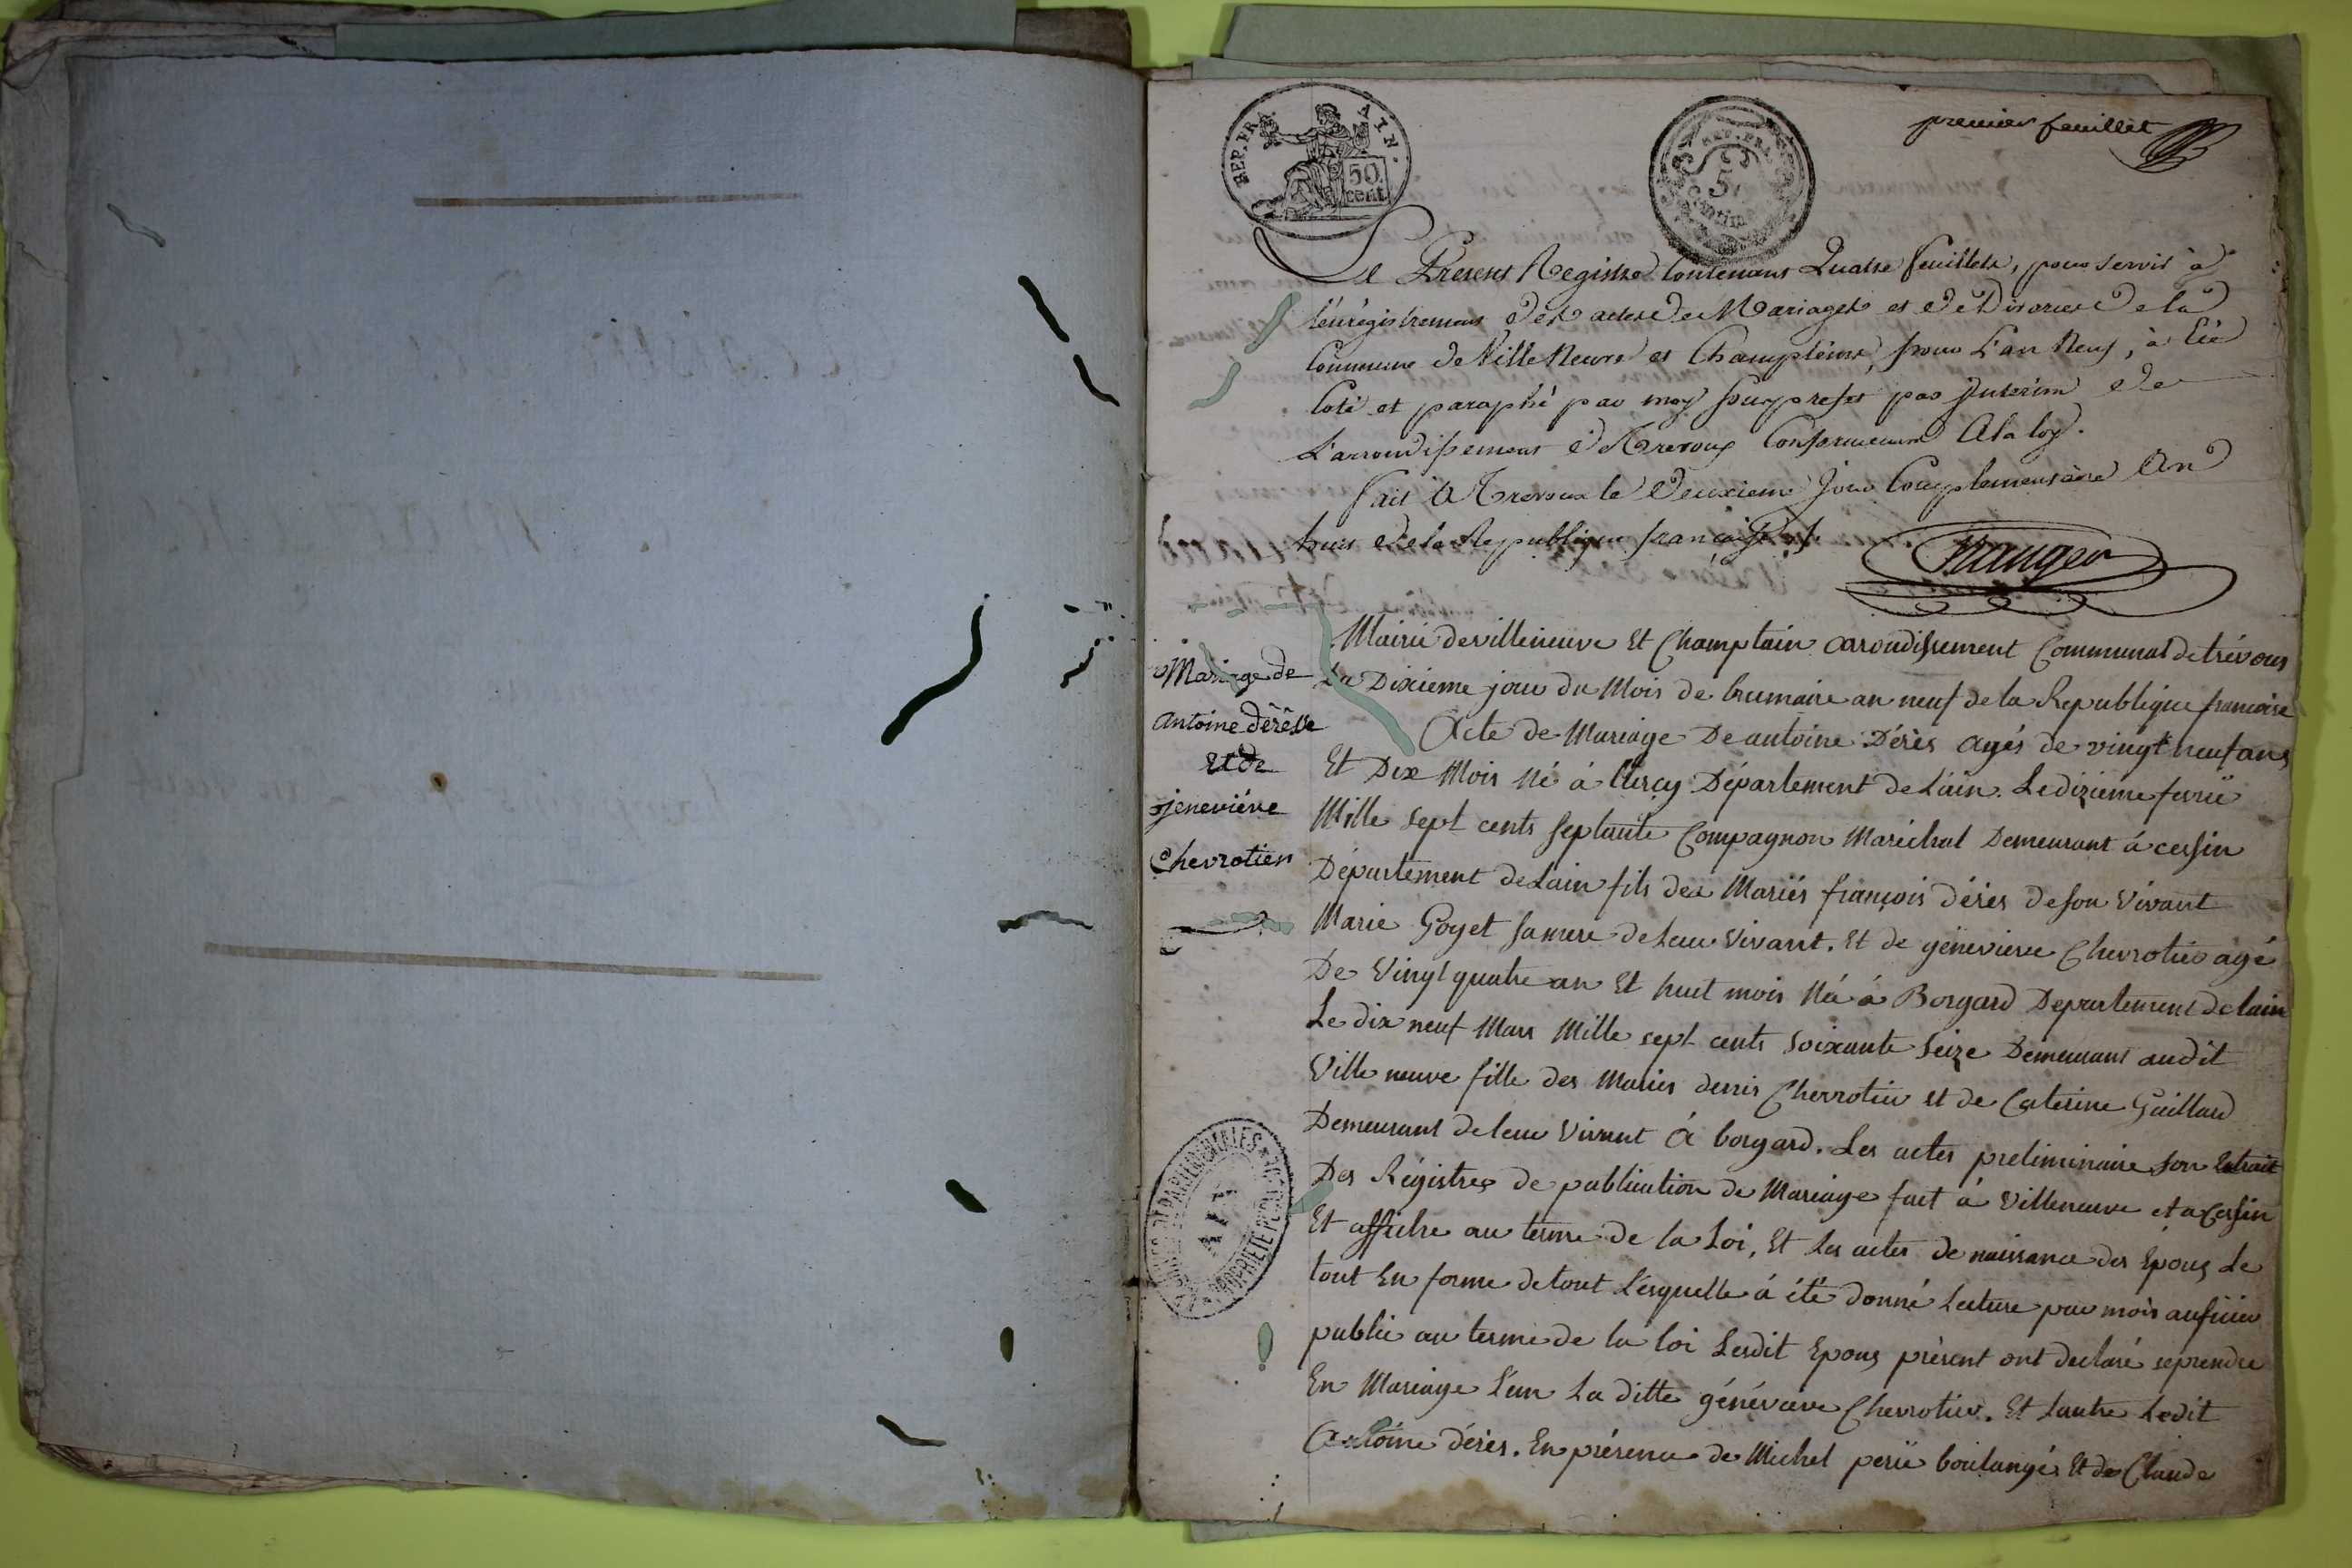 premier feuillet
REP. FRA.
AIN.
50 cent
REP. FRA
5 centim
Le Present Registre Contenant Quatre feuillets, pour servir à
l'enregistrement des actes de Mariages et de Divorces de la
Commune de Ville Neuve et Champteins pour L'an Neuf, à été
Coté et paraphé par moy sousprefet par Interim de
L'arrondissement de Trevoux Conformement A la loy.
fait A Trevoux le Deuxieme Jour Complementaire An
huit de la Republique française
Mairie de villeneuve Et Champtain arondissement Communal de trévoux
Le Dixieme jour du Mois de brumaire an neuf de la Republique francoise
Mariage de
antoine dérès
Et de
jeneviéve
Chevrotier
Acte de Mariage De antoine Dérès agés de vingt neuf ans
Et Dix Mois né á Clercy Département de L'ain. Le dixieme
Mille Sept cents septante Compagnon Maréchal Demeurant á cersin
Département de Lain fils des Mariés françois dérès de son Vivant
Marie Goyet sa mere de Leur Vivant. Et de génevieve Chevrotier agé
De Vingt quatre an Et huit mois Né á Borgard Departement de lain
Le dix neuf Mars Mille sept cents Soixante Seize Demeurant audit
Ville neuve fille des Mariés denis Chevrotier et de Caterine Gaillard
Demeurant de leur Vivant á borgard. Les actes preliminaire son Extrait
Des Régistres de publication de Mariage fait á Villeneuve et a Cersin
Et affiche au terme de la Loi, Et les actes de naissance des Epoux Le
tout En forme de tout Lésquelle á été donné Lecture par mois
public au terme de la loi Lesdit Epoux present ont declaré se prendre
En Mariage L'un La ditte généveve Chevrotier. Et Lautre Ledit
Antoine dérès. En présence de Michel boulangér Et de Claude
ARCHIVES DÉPARTEMENTALES
AIN
PROPRIÉTÉ PUBLIQUE